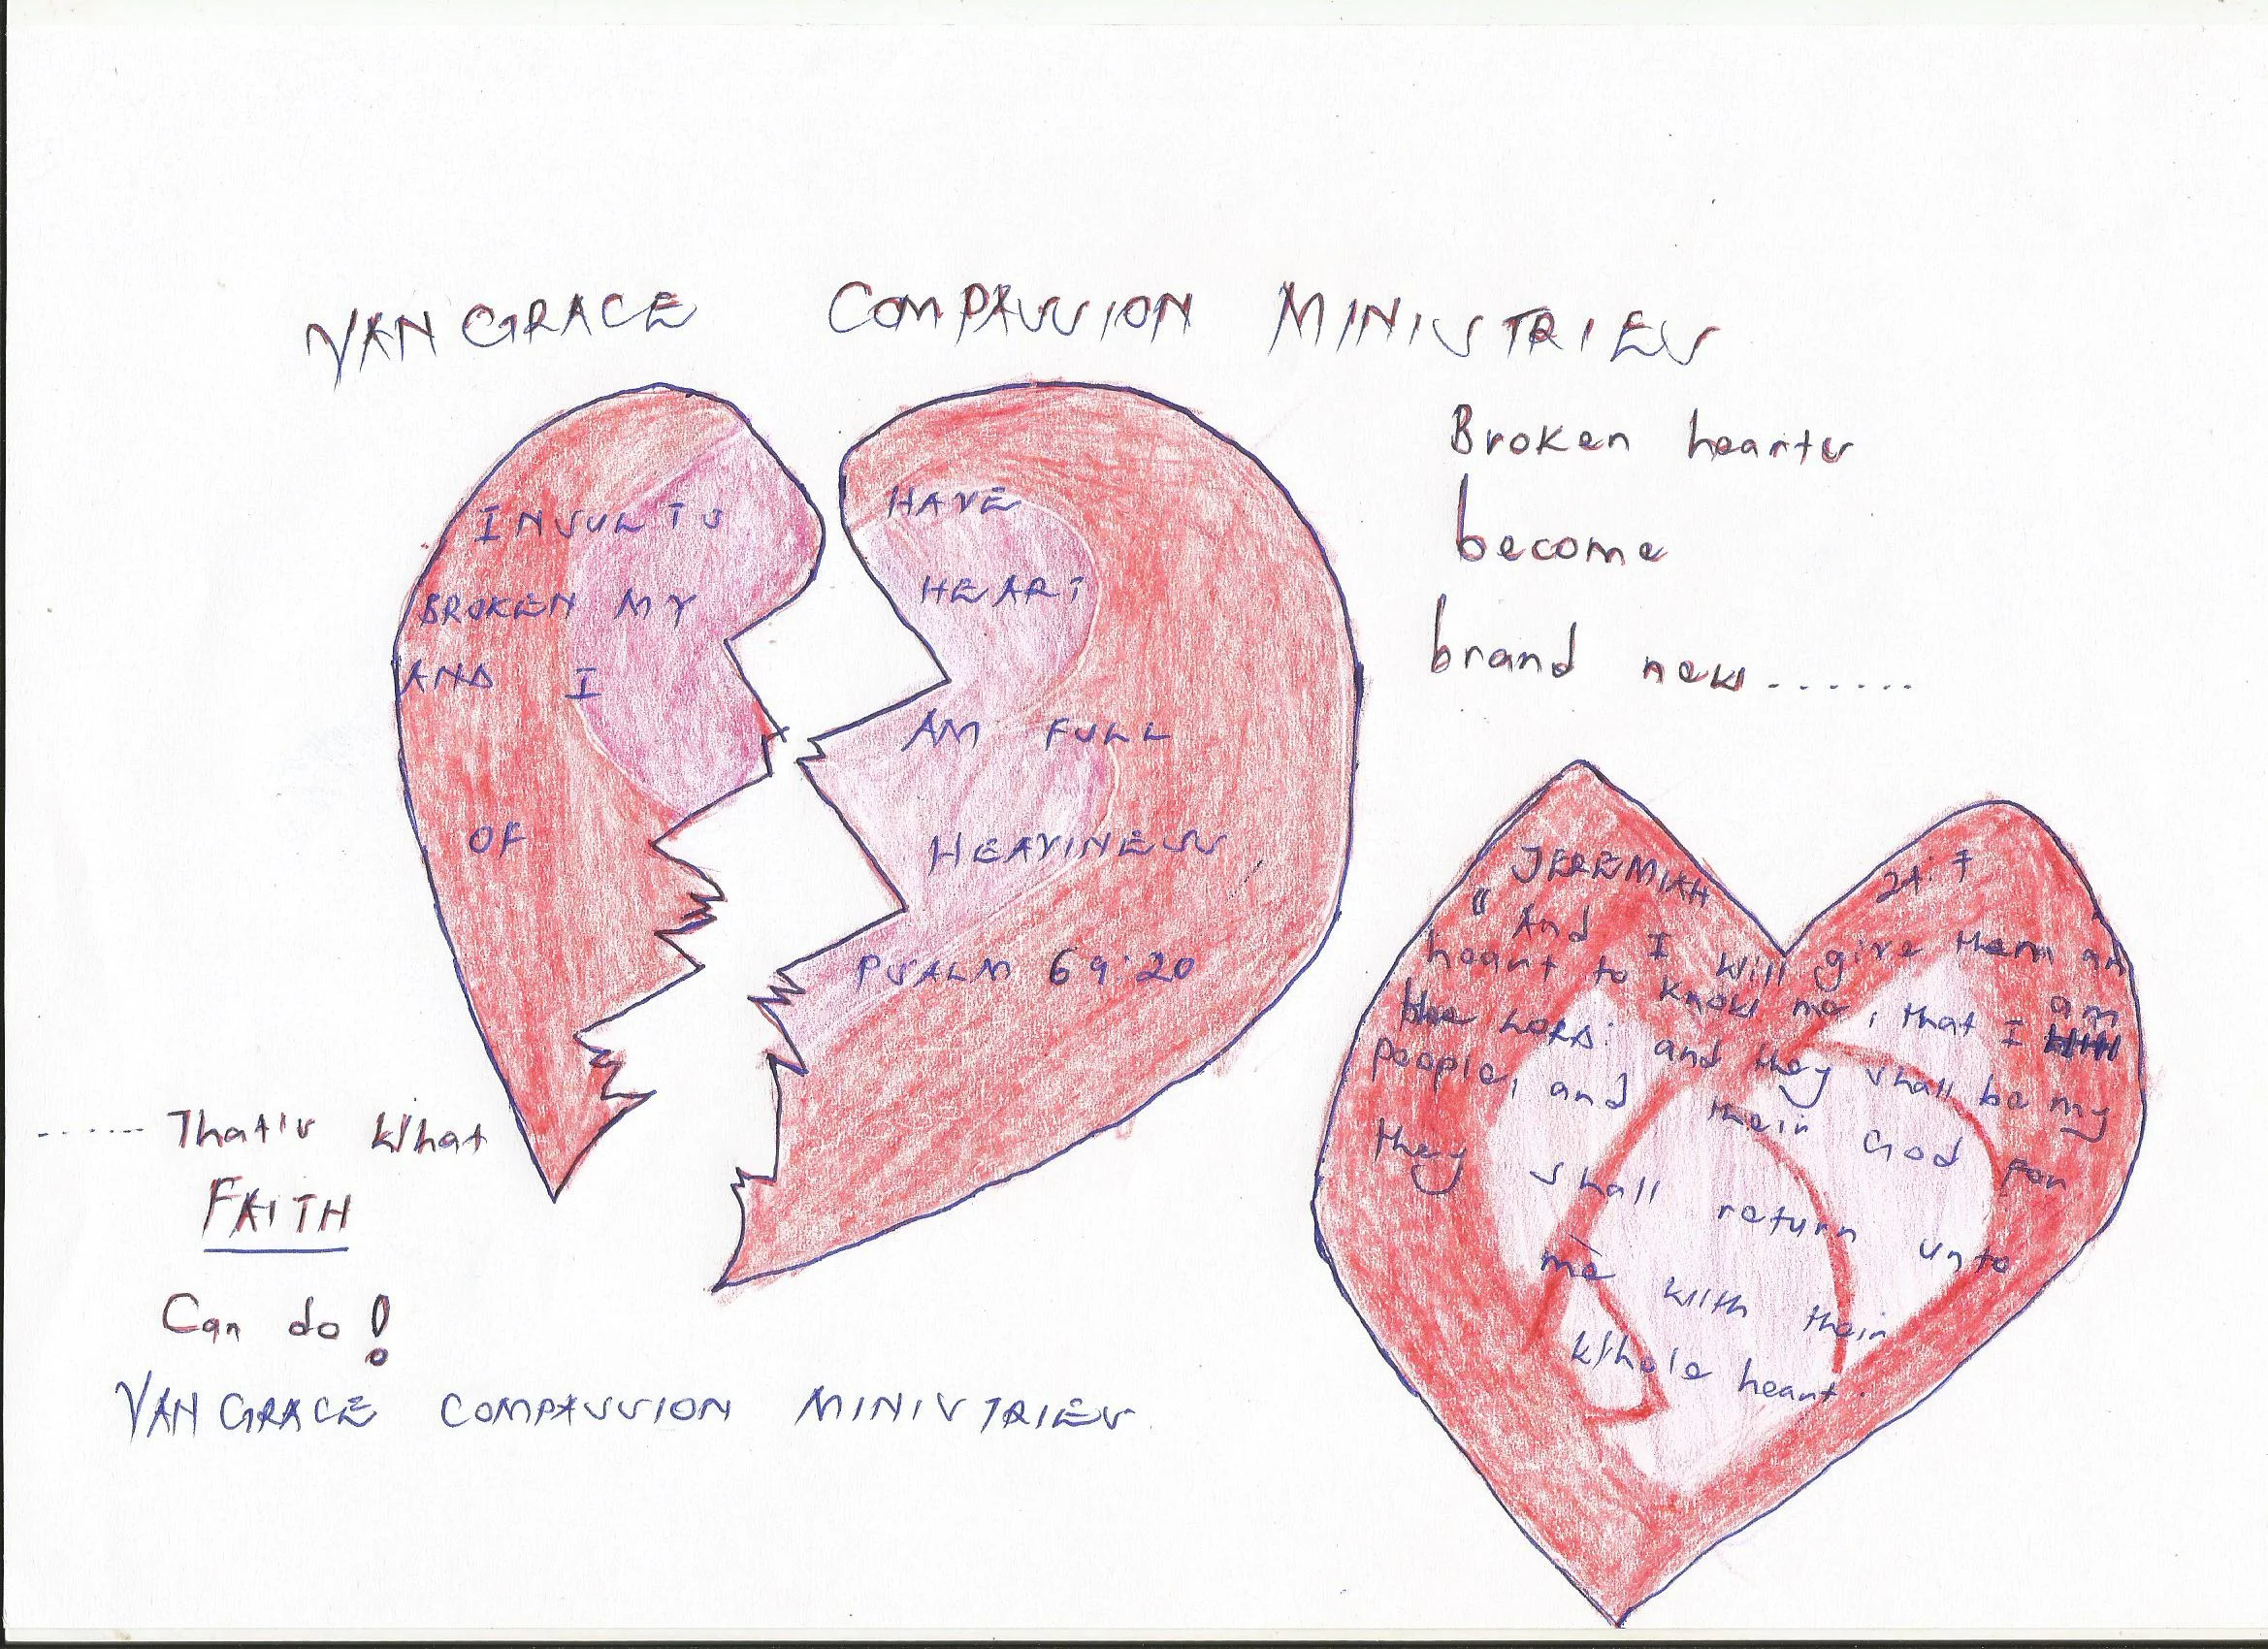 VANGRACE COMPASSION MINISTRIES
Broken hearts
become
brand new.......
INSULTS HAVE
BROKEN MY HEART
AND I AM FULL
OF HEAVINESS
PSALM 69:20
JEREMIAH 24:7
"And I will give them an
heart to know me, that I am
the LORD: and they shall be my
people, and their God for
they shall return unto
me with their
whole heart.
...... That's what
FAITH
Can do!
VANGRACE COMPASSION MINISTRIES.